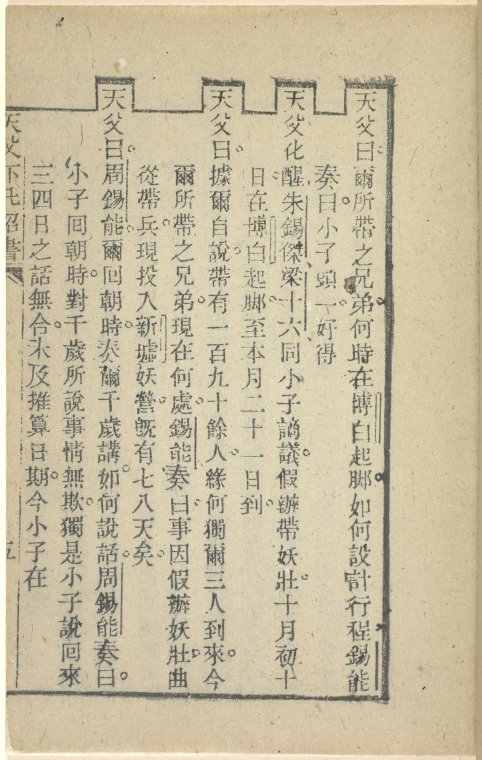 天父曰爾所帶之兄弟何時在博白起脚如何設計行程錫能
奏曰小子頭一好得
天父化醒朱錫傑梁十六同小子謪議假辦帶妖壯十月初十
日在博白起脚至本月二十一日到
天父曰據爾自說帶有一百九十餘人緣何獨爾三人到來今
爾所帶之兄弟現在何處錫能奏曰事因假辦妖壯曲
從帶兵現投入新墟妖營旣有七八天矣
天父曰周錫能爾囘朝時奏爾千歲講如何說話周錫能奏曰
小子囘朝時對千歲所說事情無欺獨是小子說囘來
三四日之話無合未及推算日期今小子在
天父下凡詔書
五